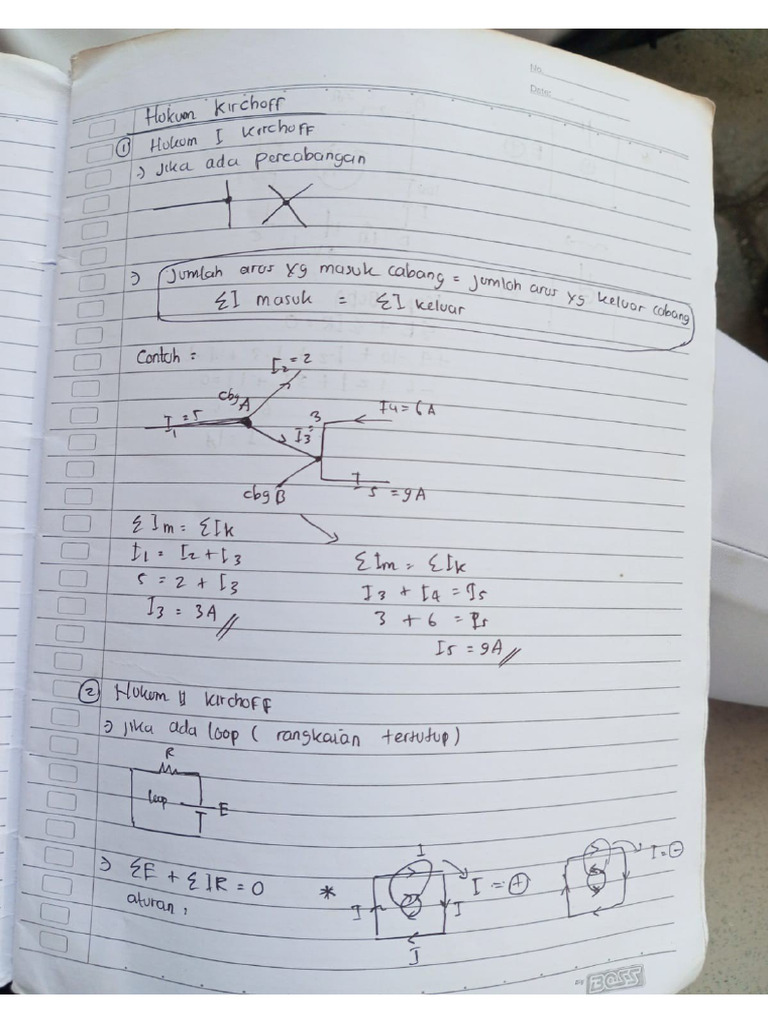 No.
Date:
Hokum Kirchoff
① Hokum I Kirchoff
⇒ Jika ada percabangan
⇒ Jumlah arus yg masuk cabang = jumlah arus yg keluar cabang
ΣI masuk = ΣI keluar
Contoh :
I2 = 2
cbg A
I1 = 5
I3 = 3
I4 = 6A
I5 = 9A
cbg B
ΣIm = ΣIk
I1 = I2 + I3
5 = 2 + I3
I3 = 3A //
ΣIm = ΣIk
I3 + I4 = I5
3 + 6 = I5
I5 = 9A //
② Hokum II Kirchoff
⇒ Jika ada loop ( rangkaian tertutup)
R
loop
E
⇒ ΣE + ΣIR = 0
aturan ;
*
I
I = ⊕
I
I
I
I = ⊖
BY BOSS